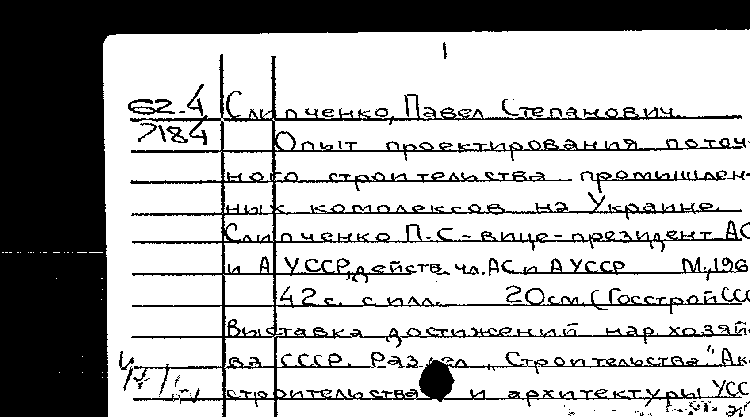 62-4 Слипченко, Павел Степанович.
7184 Опыт проектирования поточ-
ного строительства промышлен-
ных комплексов на Украине.
Слипченко П.С.-вице-президент АС
и А УССР, действ. чл. АС и А УССР М., 196
42с. с илл. 20см. (Госстрой ССС
Выставка достижений нар. хозяй
ва СССР. Раздел „Строительства" Ак
строительства и архитектуры УСС